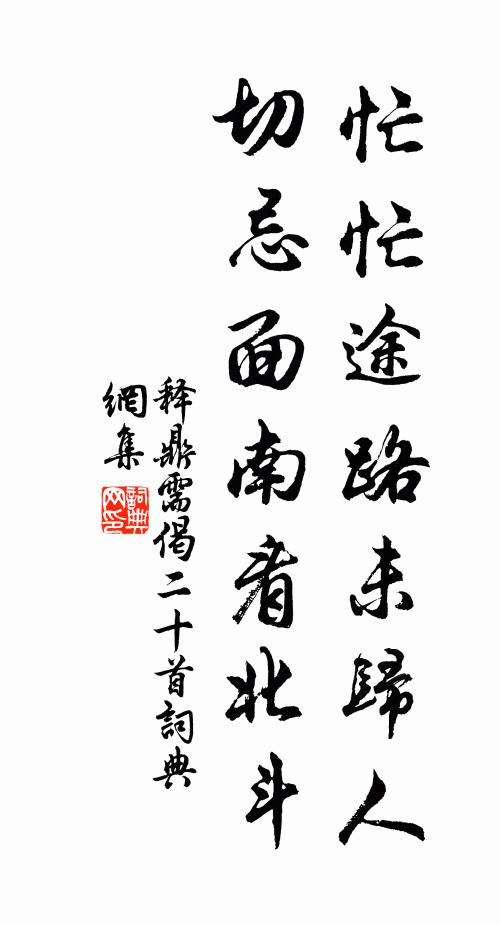 忙忙途路未歸人
切忌面南看北斗
释鼎需偈二十首詞典
網集
詞典網印